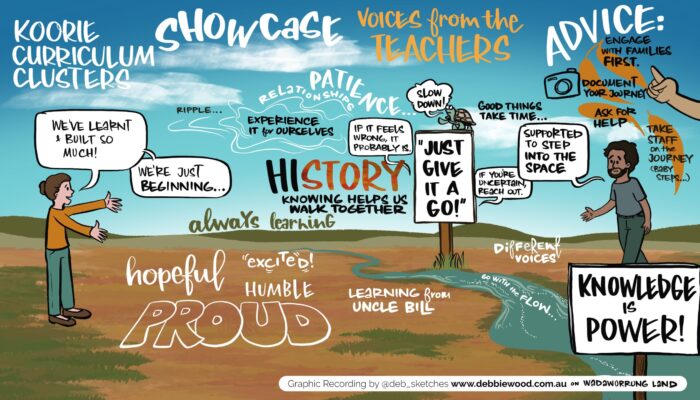 KOORIE
CURRICULUM
CLUSTERS
SHOWCASE
VOICES from the
TEACHERS
ADVICE:
ENGAGE
WITH FAMILIES
FIRST.
DOCUMENT
YOUR JOURNEY
ASK FOR
HELP
TAKE
STAFF
on the
JOURNEY
(BABY
STEPS...)
WE'VE LEARNT
& BUILT SO
MUCH!
WE'RE JUST
BEGINNING...
RIPPLE...
RELATIONSHIPS
PATIENCE...
EXPERIENCE
IT for OURSELVES
SLOW
DOWN!
GOOD THINGS
TAKE TIME...
IF IT FEELS
WRONG, IT
PROBABLY IS.
"JUST
GIVE
IT A
GO!"
SUPPORTED
TO STEP
INTO THE
SPACE
IF YOU'RE
UNCERTAIN,
REACH OUT.
HISTORY
KNOWING HELPS US
WALK TOGETHER
always learning
hopeful
"EXCITE"D!
HUMBLE
PROUD
LEARNING from
UNCLE BILL
DIFFERENT
VOICES
GO WITH THE FLOW...
KNOWLEDGE
IS
POWER!
Graphic Recording by @deb_sketches www.debbiewood.com.au on WADAWORRUNG LAND